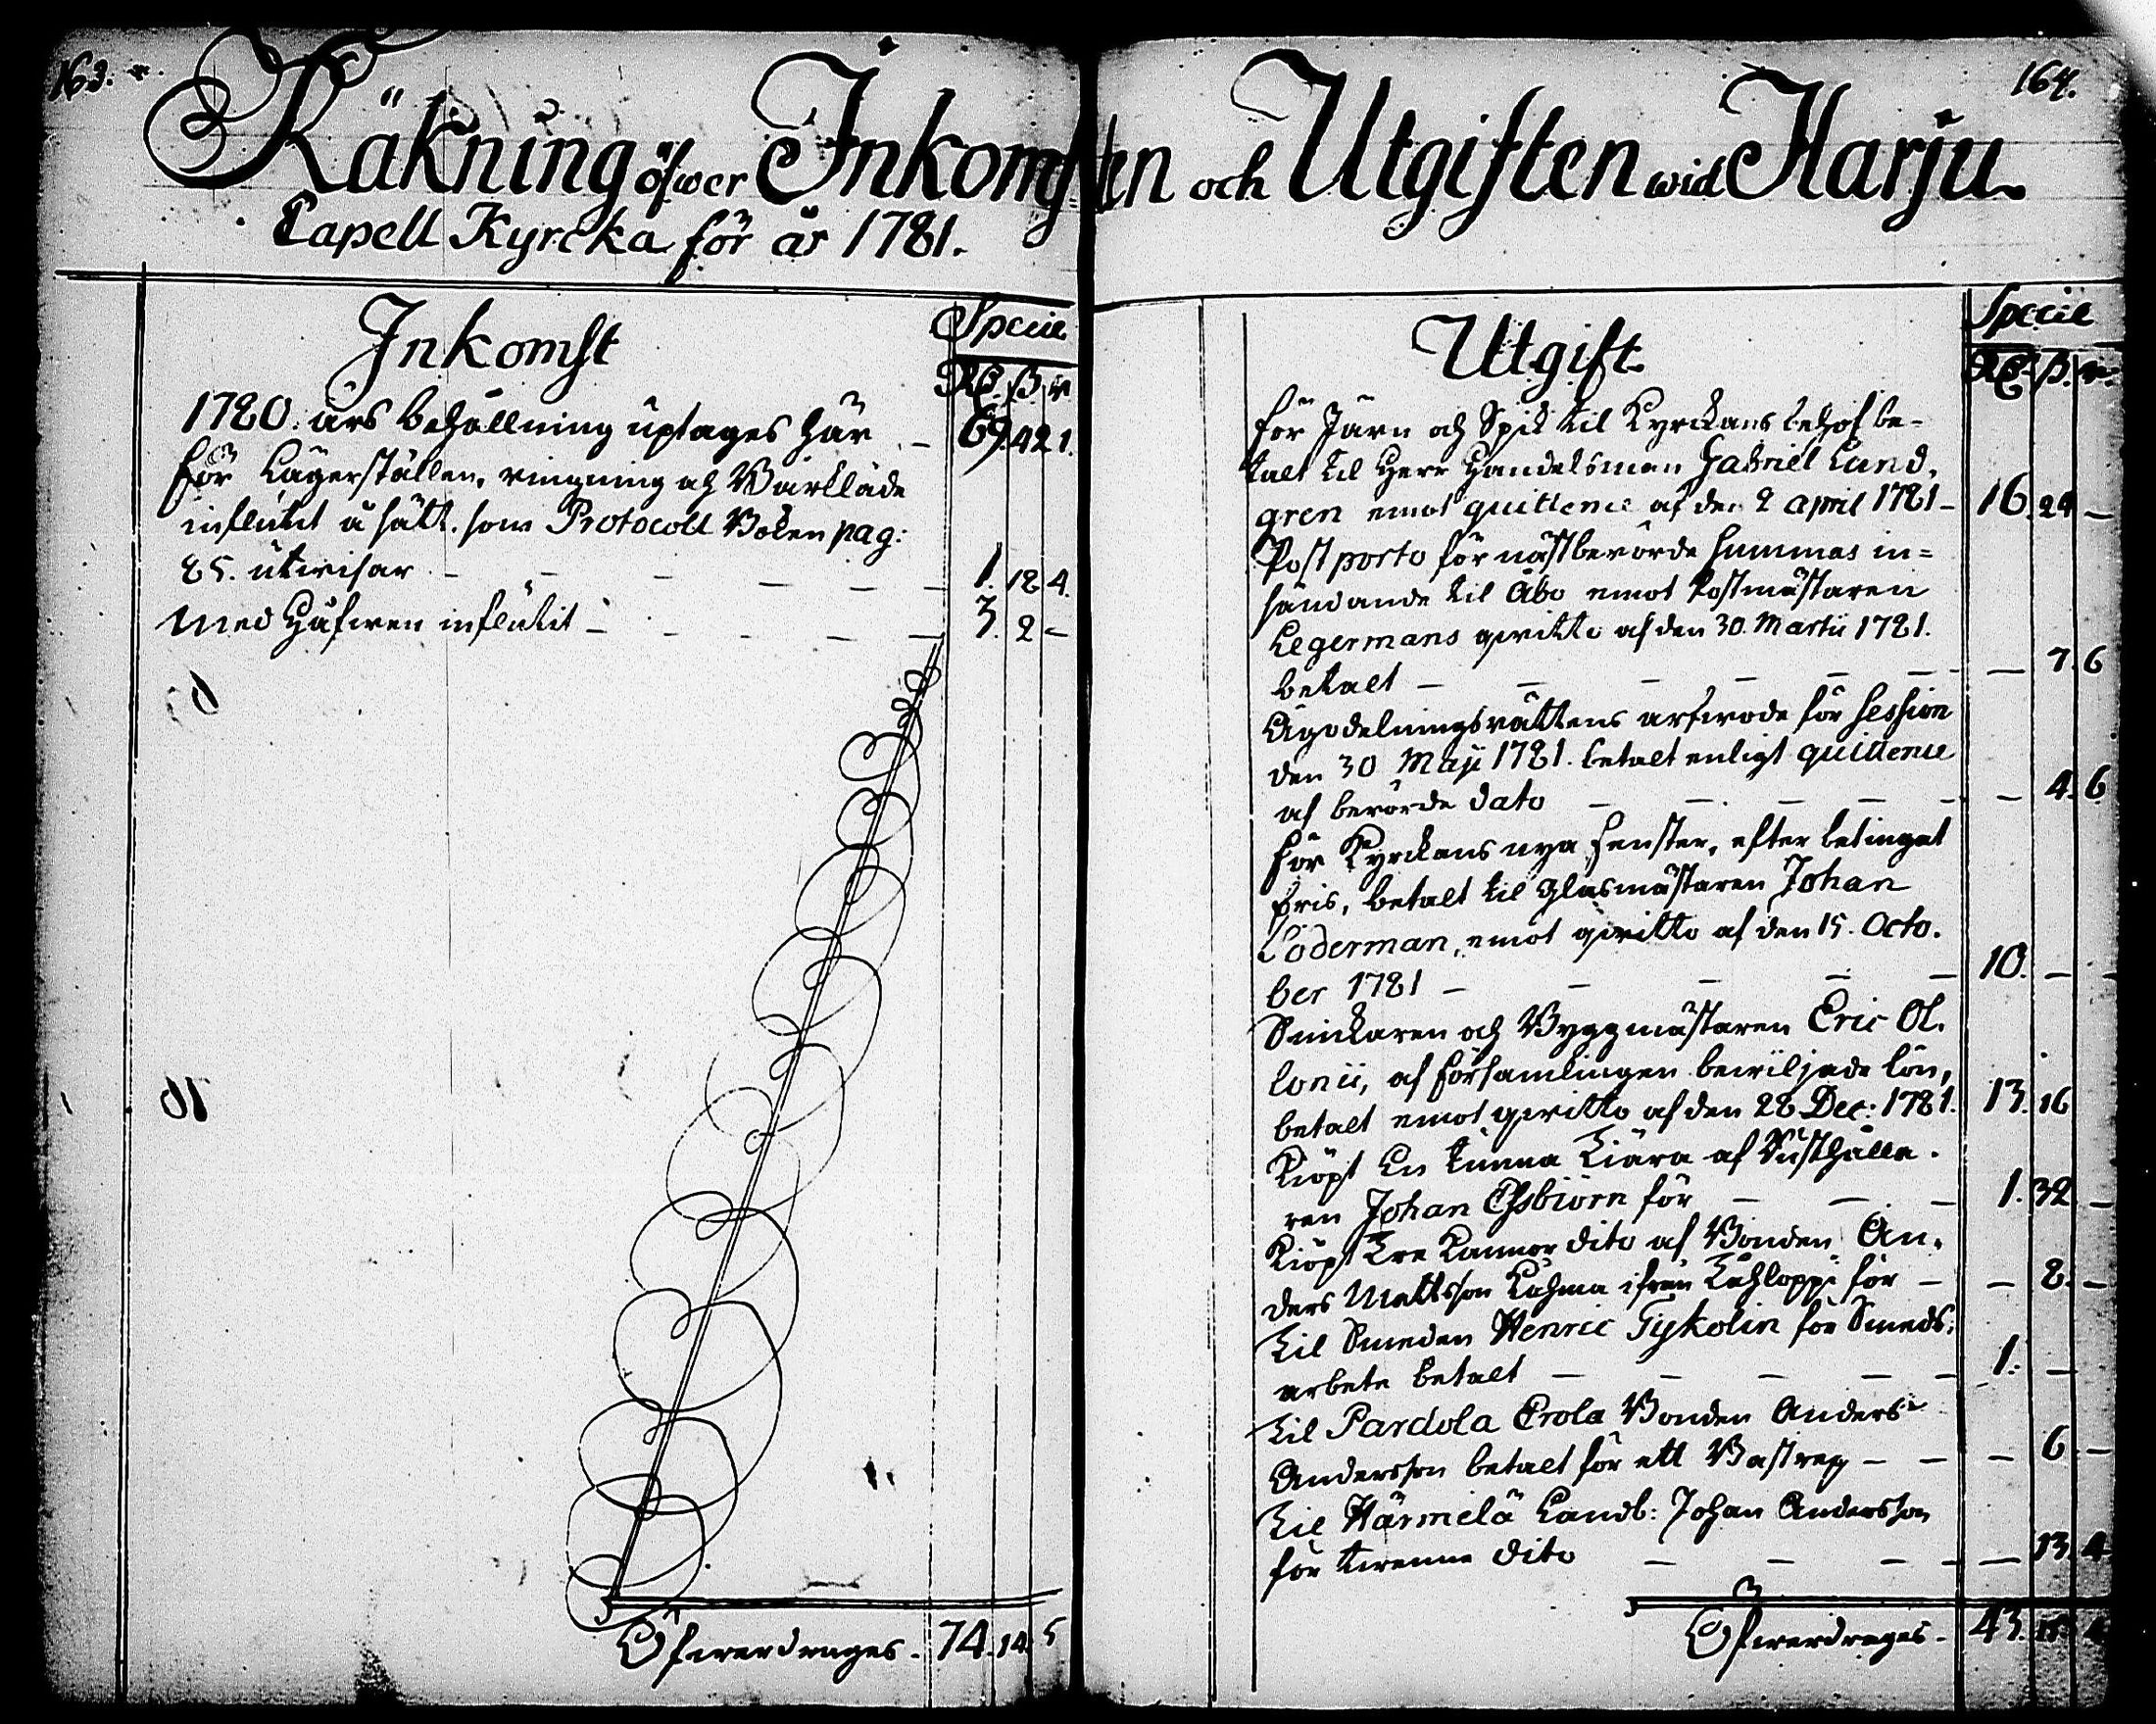 163.
Räkning öfwer Inkomsten och Utgiften wid Harju
Capell Kyrcka för år 1781.
Inkomst
Specie
R β r
1780. års behållning uptages här - 69. 42 1.
för Lägerställen, ringning och Bårkläde
influtit å sätt. som Protocoll Boken pag:
85. utwisar - - - - - 1. 18 4.
Med Häfwen influtit - - - - - 3. 2 -
Öfwerdrages - 74. 14. 5
164.
Utgift
Specie
R β. r.
för Järn och Spik til Kyrckans behof be-
talt til Herr Handelsman Gabriel Lund,
gren emot quittence af den 2 april 1781 - 16. 24 -
Postporto för nästberörde summas in=
sändande til Åbo emot Postmästaren
Legermans qwitto af den 30. Martii 1781.
betalt - - - - - - 7. 6
Ägodelningsrättens arfwode för Session
den 30 Maji 1781. betalt enligt quittence
af berörde dato - - - - - - 4. 6
För Kyrckans nya fenster, efter betingat
pris, betalt til Glasmästaren Johan
Söderman, emot qwitto af den 15. Octo.
ber 1781 - - - - - 10. - -
Snickaren och Byggmästaren Eric Ol.
lonii, af församlingen bewiljade lön,
betalt emot qwitto af den 28 Dec: 1781. 13. 16
Kiöpt En tunna Tiära af Rusthålla.
ren Johan Esbiörn för - - - 1. 32 -
Kiöpt Tre Kannor dito af Bonden An.
ders Mattsson ifrån för - - 8. -
Til Smeden Henric Tykolin för Smeds.
arbete betalt - - - - - 1. -
Til Pardola Erola Bonden Anders
Andersson betalt för ett Bastrep - - - 6 -
Til Härmelä Landb: Johan Andersson
för twenne dito - - - - - 13. 4
Öfwerdrages - 43. 15. 4